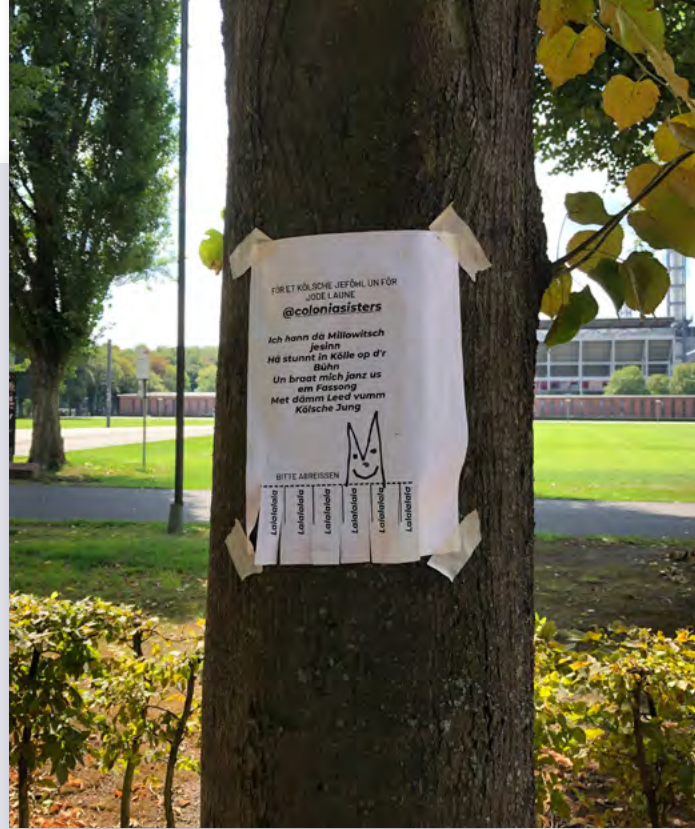 FÖR ET KÖLSCHE JEFÖHL UN FÖR
JODE LAUNE
@coloniasisters
Ich hann dä Millowitsch
jesinn
Hä stunnt in Kölle op d'r
Bühn
Un braat mich janz us
em Fassong
Met dämm Leed vumm
Kölsche Jung
BITTE ABREISSEN
Lalalalala
Lalalalala
Lalalalala
Lalalalala
Lalalalala
Lalalalala